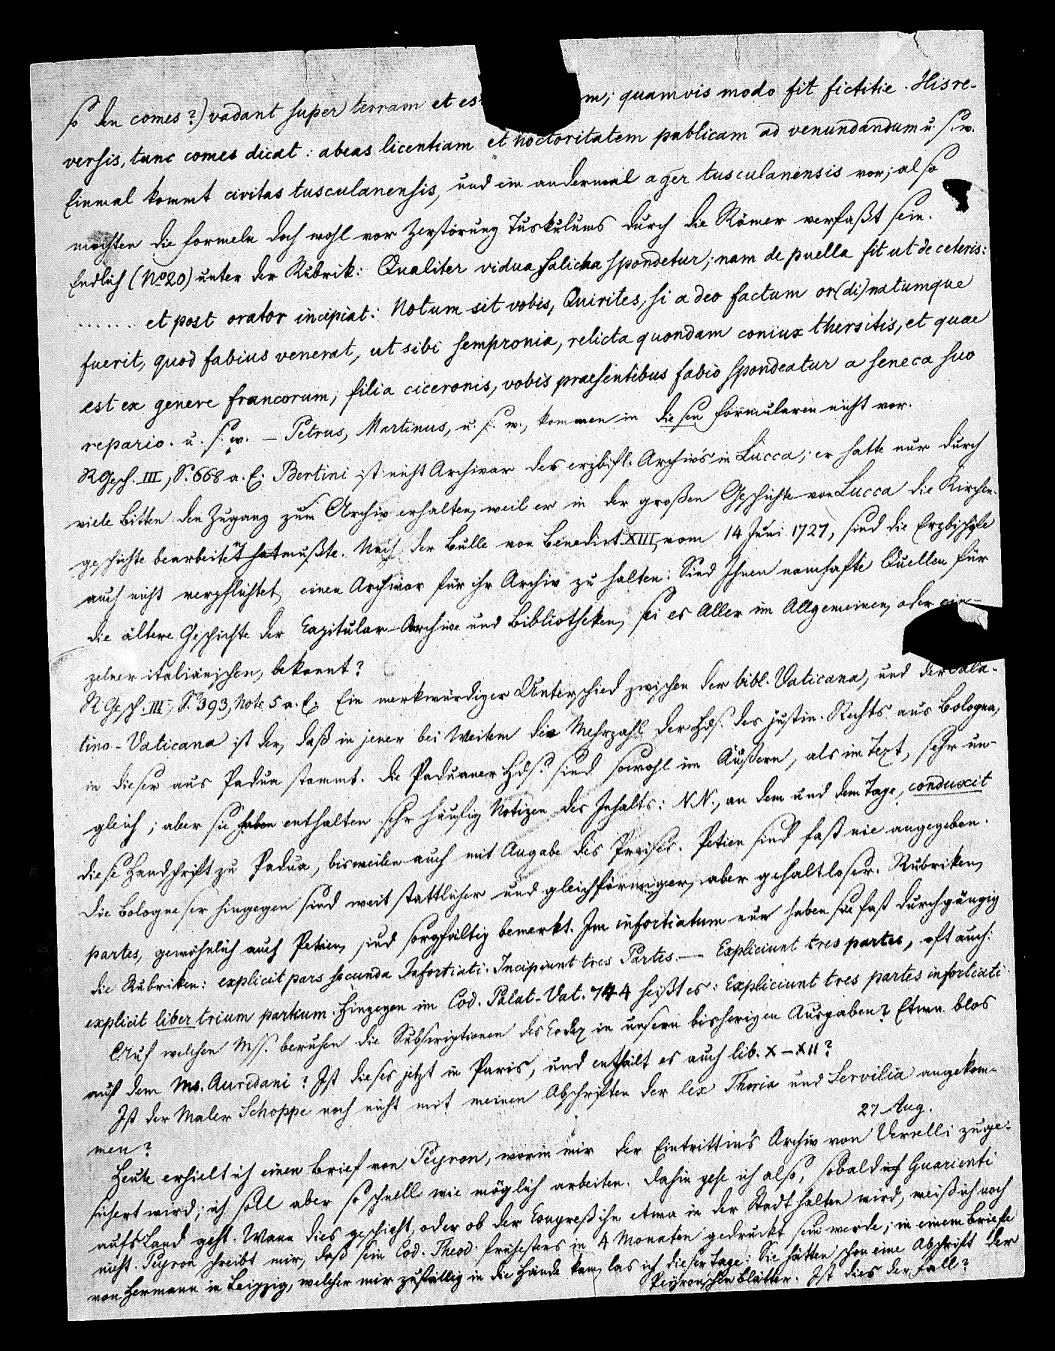 so den comes?) vadant super terram et es m; quamvis modo fit fictitie. His re-
versis, tunc comes dicat: abeas licentiam et hoctoritatem publicam ad venundandum u. s. w.
Einmal kommt civitas tusculanensis, und ein andermal ager tusculanensis vor; also
möchten die Formeln doch wohl vor Zerstörung Tuskulums durch die Römer verfaßt sein.
Endlich (No 20) unter der Rubrik: Qualiter vidua salicha spondetur; nam de puella fit ut de ceteris:
....... et post orator incipiat: Notum sit vobis, Quirites, si adeo factum or(di)natumque
fuerit, quod fabius venerat, ut sibi sempronia, relicta quondam coniux thersitis, et quae
est ex genere francorum, filia ciceronis, vobis praesentibus fabio spondeatur a seneca suo
repario. u. s. w. — Petrus, Martinus, u. s. w., kommen in diesen Formularen nicht vor.
RGesch. III, S. 668 a. E. Bertini ist nicht Archivar des erzbischl. Archivs in Lucca; er hatte nur durch
viele Bitten den Zugang zum Archiv erhalten, weil er in der großen Geschichte von Lucca die Kirchen-
geschichte bearbeiten mußte. Nach der Bulle von Benedict XIII, vom 14 Juni 1727, sind die Erzbischöfe
auch nicht verpflichtet, einen Archivar für ihr Archiv zu halten. Sind Ihnen namhafte Quellen für
die ältere Geschichte der Capitular-Archive und Bibliotheken, sei es Aller im Allgemeinen, oder ein-
zelner italiänischen, bekannt?
RGesch. III, S. 393, Note 5 a. E. Ein merkwürdiger Unterschied zwischen der bibl. Vaticana, und der Pala-
tino-Vaticana ist der, daß in jener bei Weitem die Mehrzahl der Hds. des justin. Rechts aus Bologna,
in dieser aus Padua stammt. Die Paduaner Hds. sind sowohl im Äußern, als im Text, sehr un-
gleich; aber sie haben enthalten sehr häufig Notizen des Inhalts: N.N., an dem und dem Tage, conduxit
diese Handschrift zu Padua, bisweilen auch mit Angabe des Preises. Petien sind fast nie angegeben.
Die Bologneser hingegen sind weit stattlicher und gleichförmiger, aber gehaltloser. Rubriken,
partes, gewöhnlich auch Petien, sind sorgfältig bemerkt. Im infortiatum nur haben sie fast durchgängig
die Rubriken: explicit pars secunda Infortiati. Incipiunt tres Partes — Expliciunt tres partes, oft auch:
explicit liber trium partium. Hingegen im Cod. Palat-Vat. 744 heißt es: Expliciunt tres partes infortiati
Auf welchen Mss. beruhen die Subscriptionen des Codex in unsern bisherigen Ausgaben? Etwa blos
auf dem Ms. Auredani? Ist dieses jetzt in Paris, und enthält es auch lib. X—XII?
Ist der Maler Schoppe noch nicht mit meinen Abschriften der lex Thoria und Servilia angekom-
men?
27 Aug.
Heute erhielt ich einen Brief von Peyron, worin mir der Eintritt ins Archiv von Vercelli zuge-
sichert wird; ich soll aber so schnell wie möglich arbeiten. Dahin gehe ich also, sobald Guarienti
aufs Land geht. Wann dies geschieht, oder ob der Congreß ihn etwa in der Stadt halten wird, weiß ich noch
nicht. Peyron schreibt mir, daß sein Cod. Theod. frühestens in 4 Monaten gedruckt sein werde; in einem Briefe
von Hermann in Leipzig, welcher mir zufällig in die Hände kam, las ich dieser Tage: Sie hätten schon eine Abschrift der
Peyronschen Blätter. Ist dies der Fall?